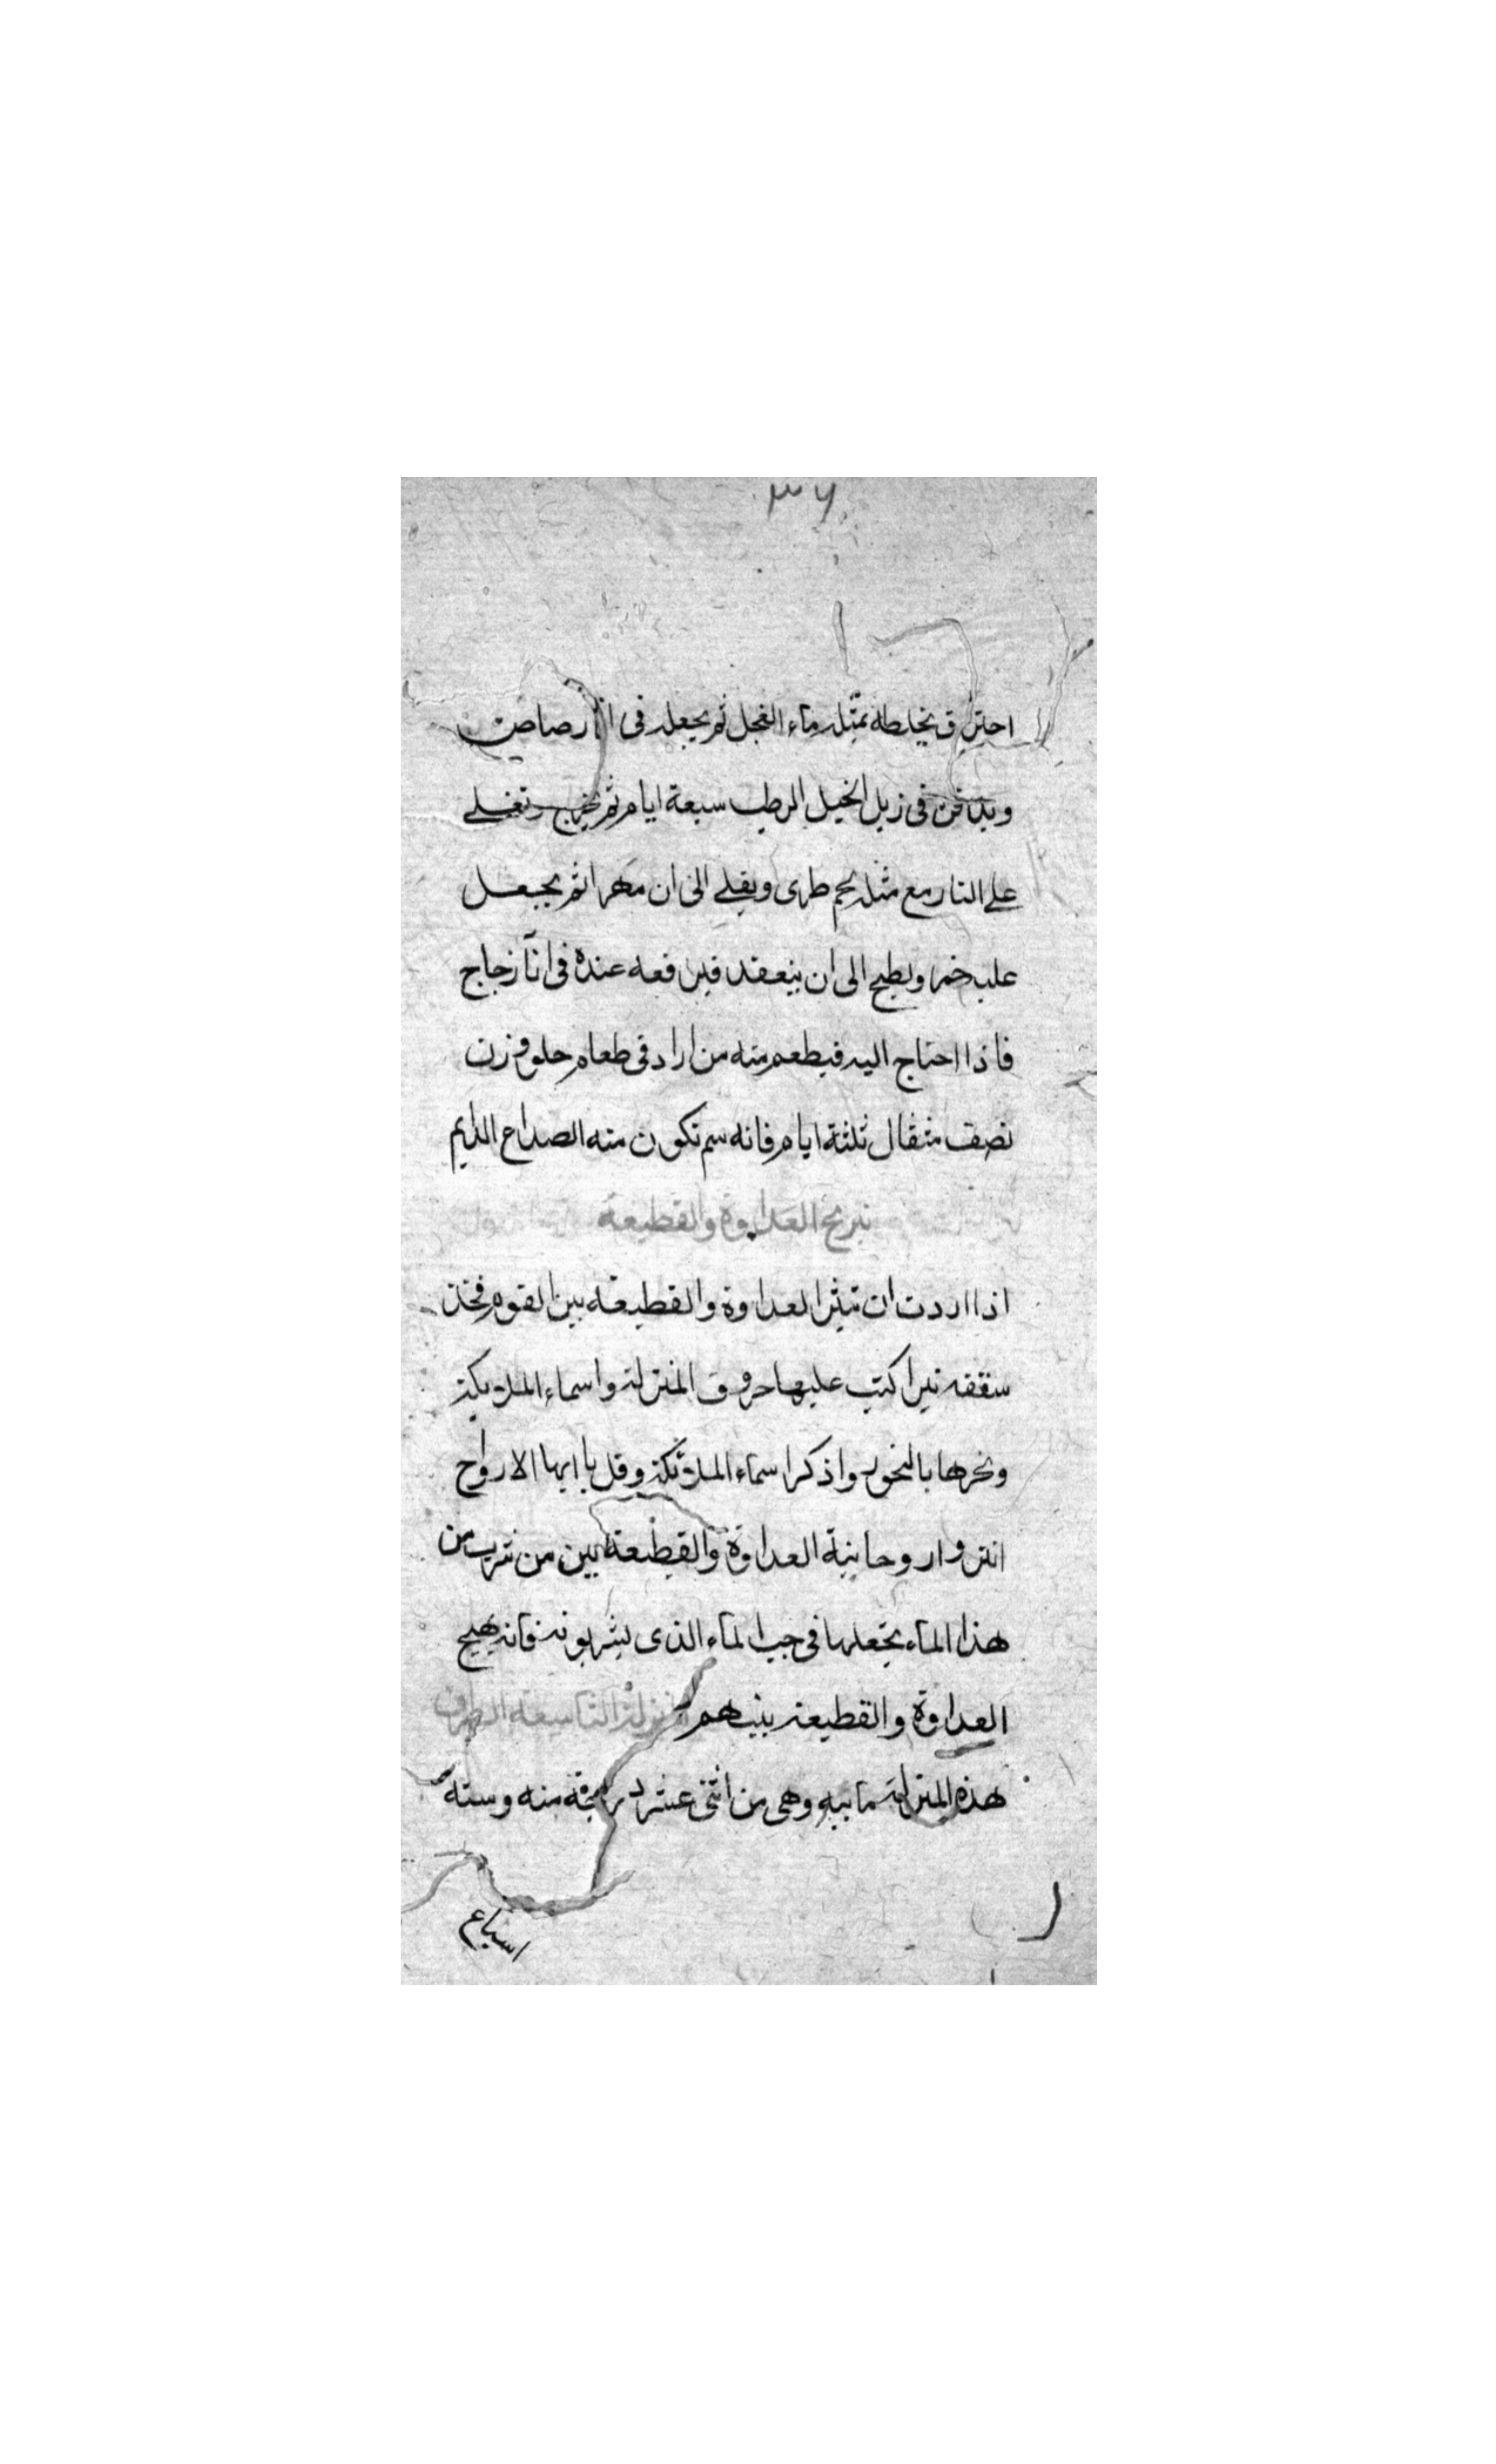 ٣٦
احترق يخلطه بمثله ماء الفجل ثم يجعله فى انآ رصاص
ويدفن فى زبل الخيل الرطب سبعة ايام ثم يخرج وتغلے
علے النار مع مثله لحم طرى ويغلے الى ان مهرا ثم يجعل
عليه خمر ويطبخ الى ان ينعقد فيرفعه عنده فى انآ زجاج
فاذا احتاج اليه فيطعم منه من اراد فى طعام حلو وزن
نصف مثقال ثلثة ايام فانه سم تكون منه الصداع الدايم
نيرنج العداوة والقطيعة
اذا اردت ان تثير العداوة والقطيعة بين القوم فخذ
اكتب عليها حروف المنزلة واسماء الملايكة
وبخرها بالبخور واذكر اسماء الملائكة وقل يا ايها الارواح
العداوة والقطيعة بين من شرب من
هذا الماء تجعلها فى جب الماء الذى يشربونه فانه يهيج
العداوة والقطيعة بينهم المنزلة التاسعة الطرف
هذه المنزلة وهى من اثنى عشر درجة منه وستة
اسباع